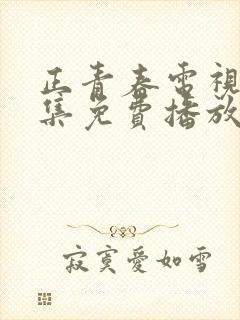 正青春電視
集免費播放
寂寞愛如雪